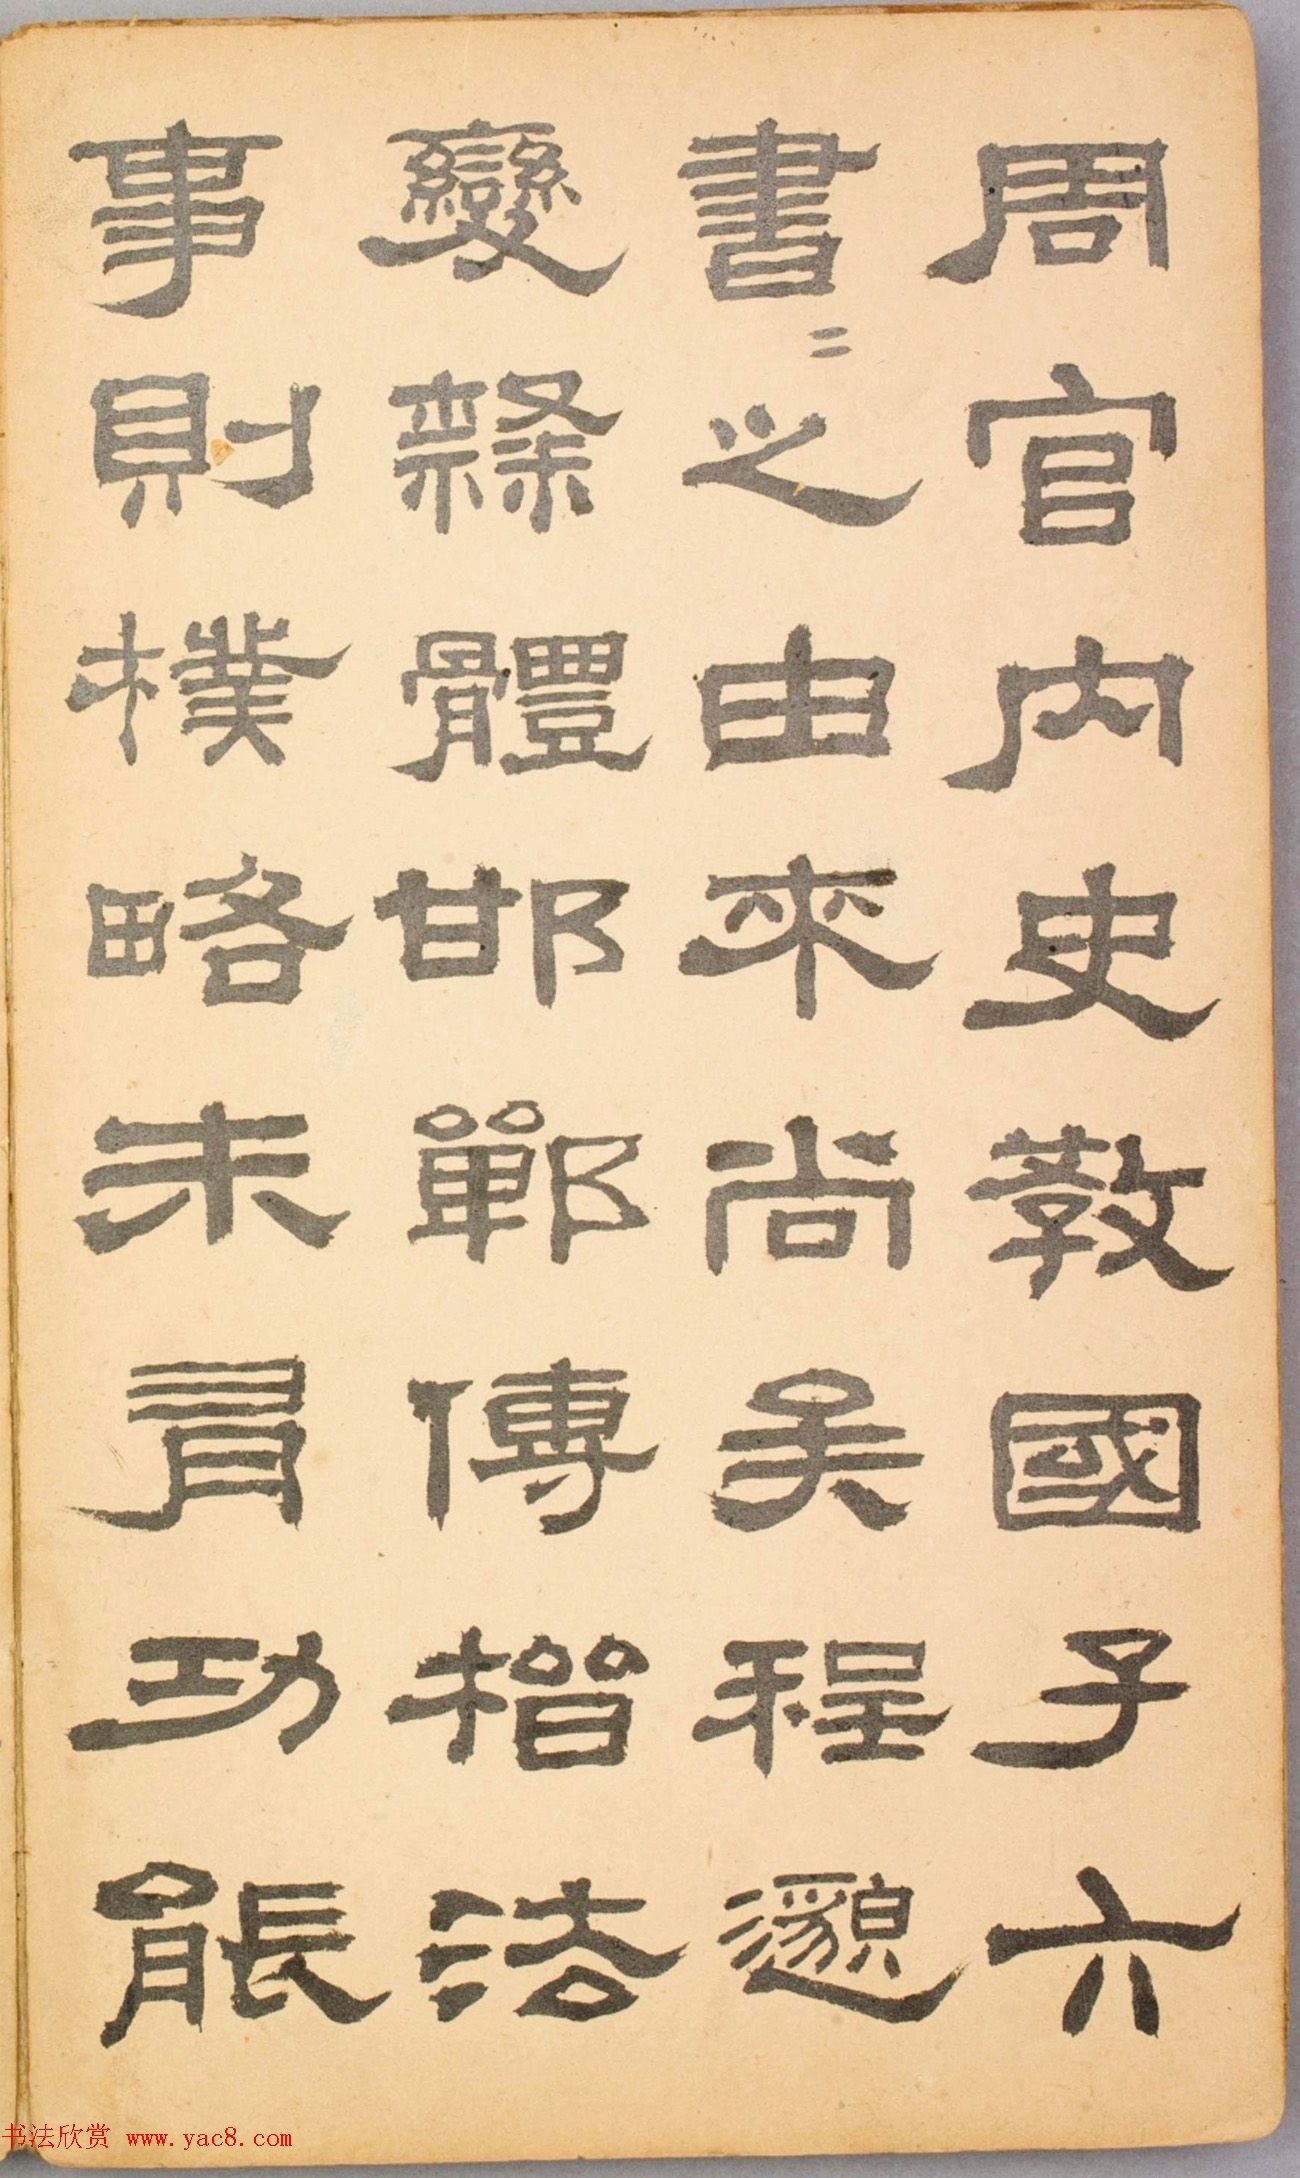 周官內史教國子六
書〻之由來尚矣程邈
變隸體邯鄲傳楷法
事則樸略未有功能
书法欣赏 www.yac8.com